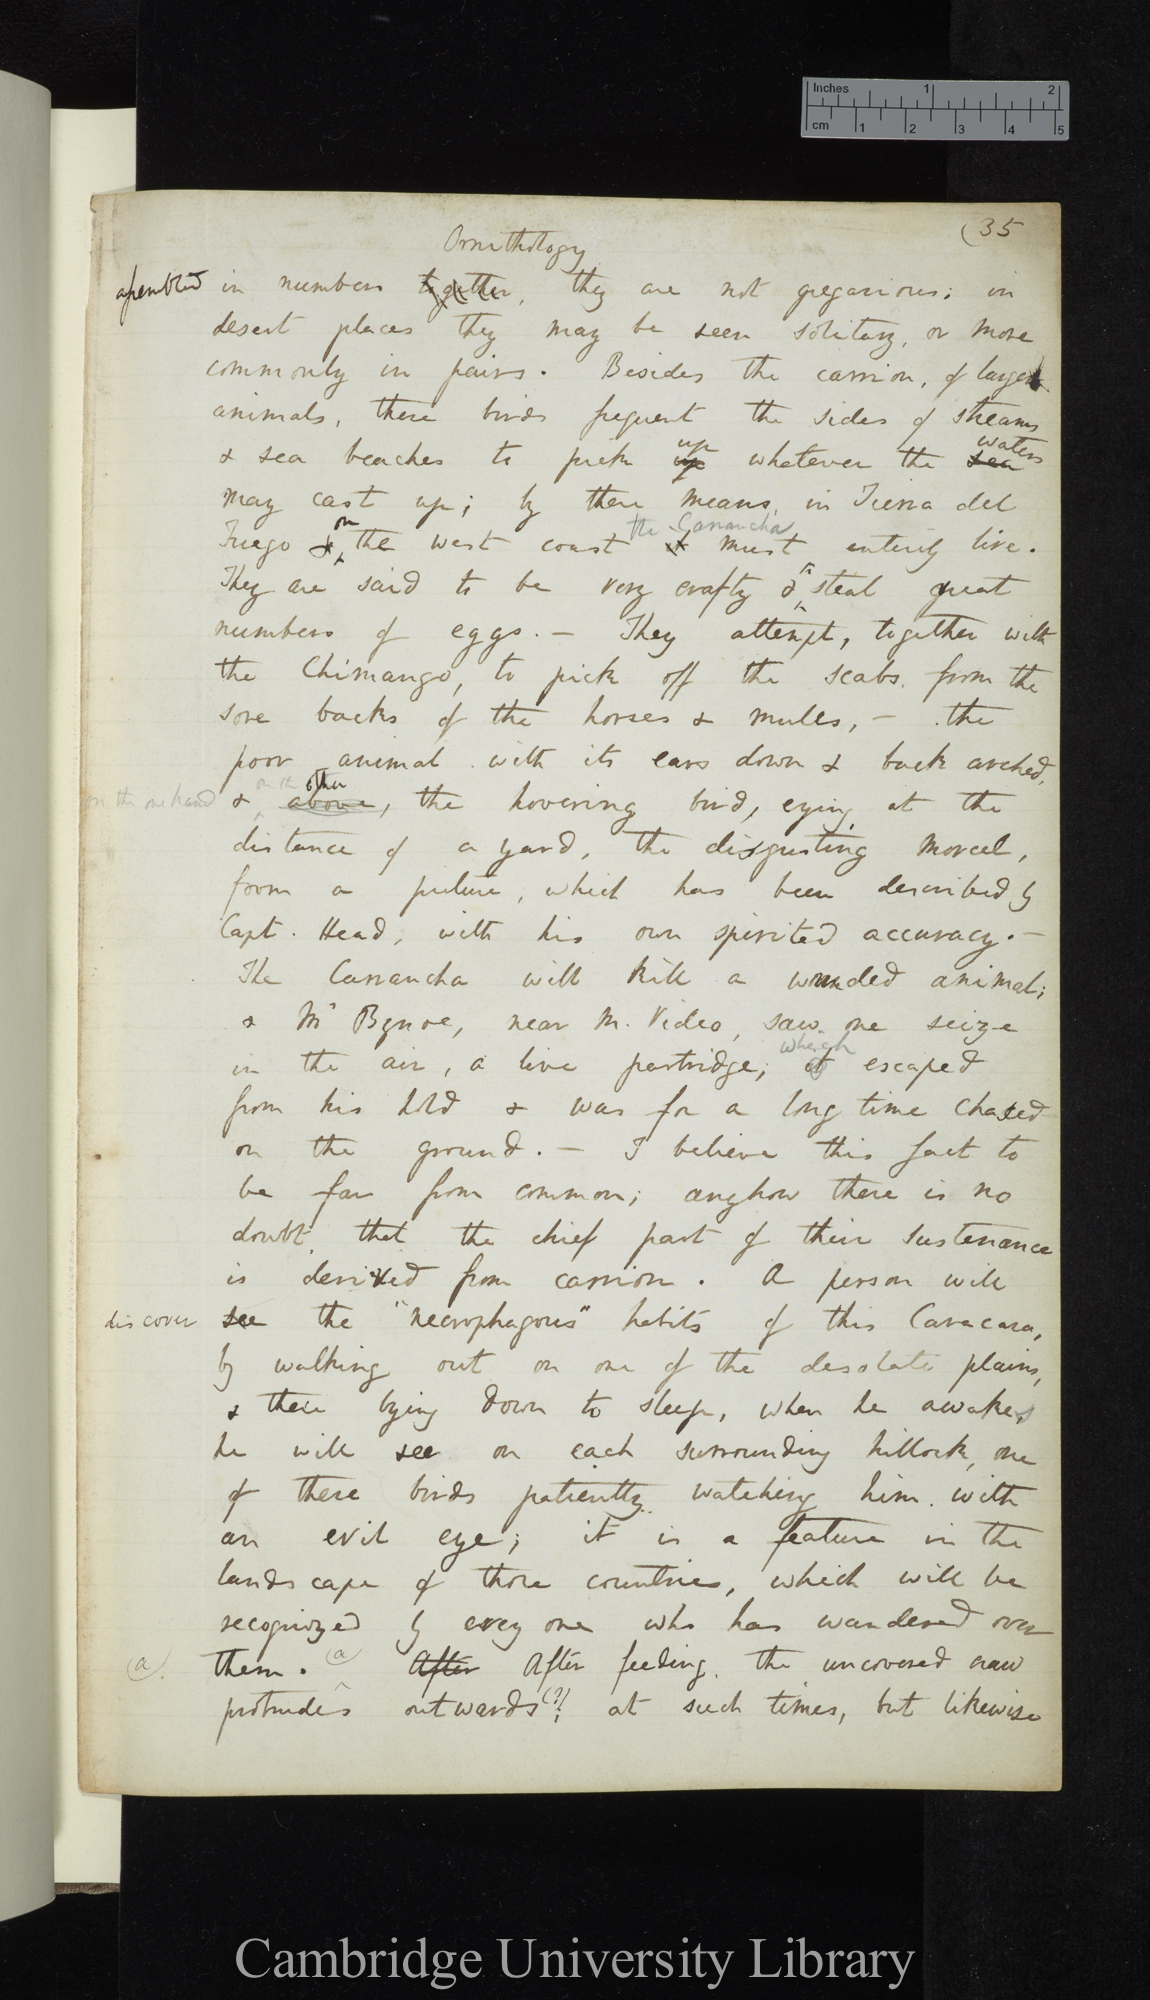 Inches 1 2
cm 1 2 3 4 5
(35
Ornithology
assembled in numbers together, they are not gregarious; in
desert places they may be seen solitary, or more
commonly in pairs. Besides the carrion, of larger
animals, these birds frequent the sides of streams
& sea beaches to pick up up whatever the sea waters
may cast up; by these means, in Tierra del
Fuego & on the west coast the Carrancha must entirely live.
They are said to be very crafty & to steal great
numbers of eggs. — They attempt, together with
the Chimango, to pick off the scabs from the
sore backs of the horses & mules, — the
poor animal with its ears down & back arched,
on the one hand & on the other above, the hovering bird, eying at the
distance of a yard, the disgusting morcel,
form a picture, which has been described by
Capt. Head, with his own spirited accuracy. —
The Carrancha will kill a wounded animal;
& Mr Bynoe, near M. Video, saw one seize
in the air, a live partridge; which it escaped
from his hold & was for a long time chased
on the ground. — I believe this fact to
be far from common; anyhow there is no
doubt that the chief part of their sustenance
is derived from carrion. A person will
discover see the "necrophagous" habits of this Caracara,
by walking out on one of the desolate plains,
& there lying down to sleep, when he awakes
he will see on each surrounding hillock, one
of these birds patiently watching him with
an evil eye; it is a feature in the
landscape of those countries, which will be
recognized by every one who has wandered over
(a) them. (a) After After feeding, the uncovered craw
protrudes outwards (?); at such times, but likewise
Cambridge University Library